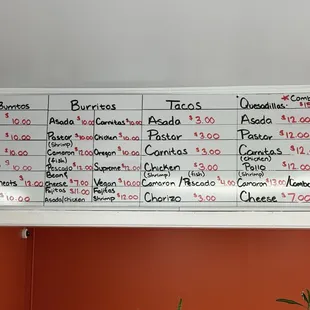 Burritos Burritos Tacos Quesadillas
$10.00 Asada $10.00 Carnitas $10.00 Asada $3.00 Asada $12.00
$10.00 Pastor $10.00 Chicken $10.00 Pastor $3.00 Pastor $12.00
(Shrimp)
$10.00 Camaron $12.00 Oregon $10.00 Carnitas $3.00 Carnitas $12.
(fish) (chicken)
$10.00 Pescado $12.00 Supreme $12.00 Chicken $3.00 Pollo $12.00
Bean & (Shrimp) (fish) (Shrimp)
meats $12.00 Cheese $7.00 Vegan $10.00 Camaron/Pescado $4.00 Camaron $13.00/Combo
Fajitas $11.00 Fajitas
$10.00 Asada/Chicken Shrimp $12.00 Chorizo $3.00 Cheese $7.00